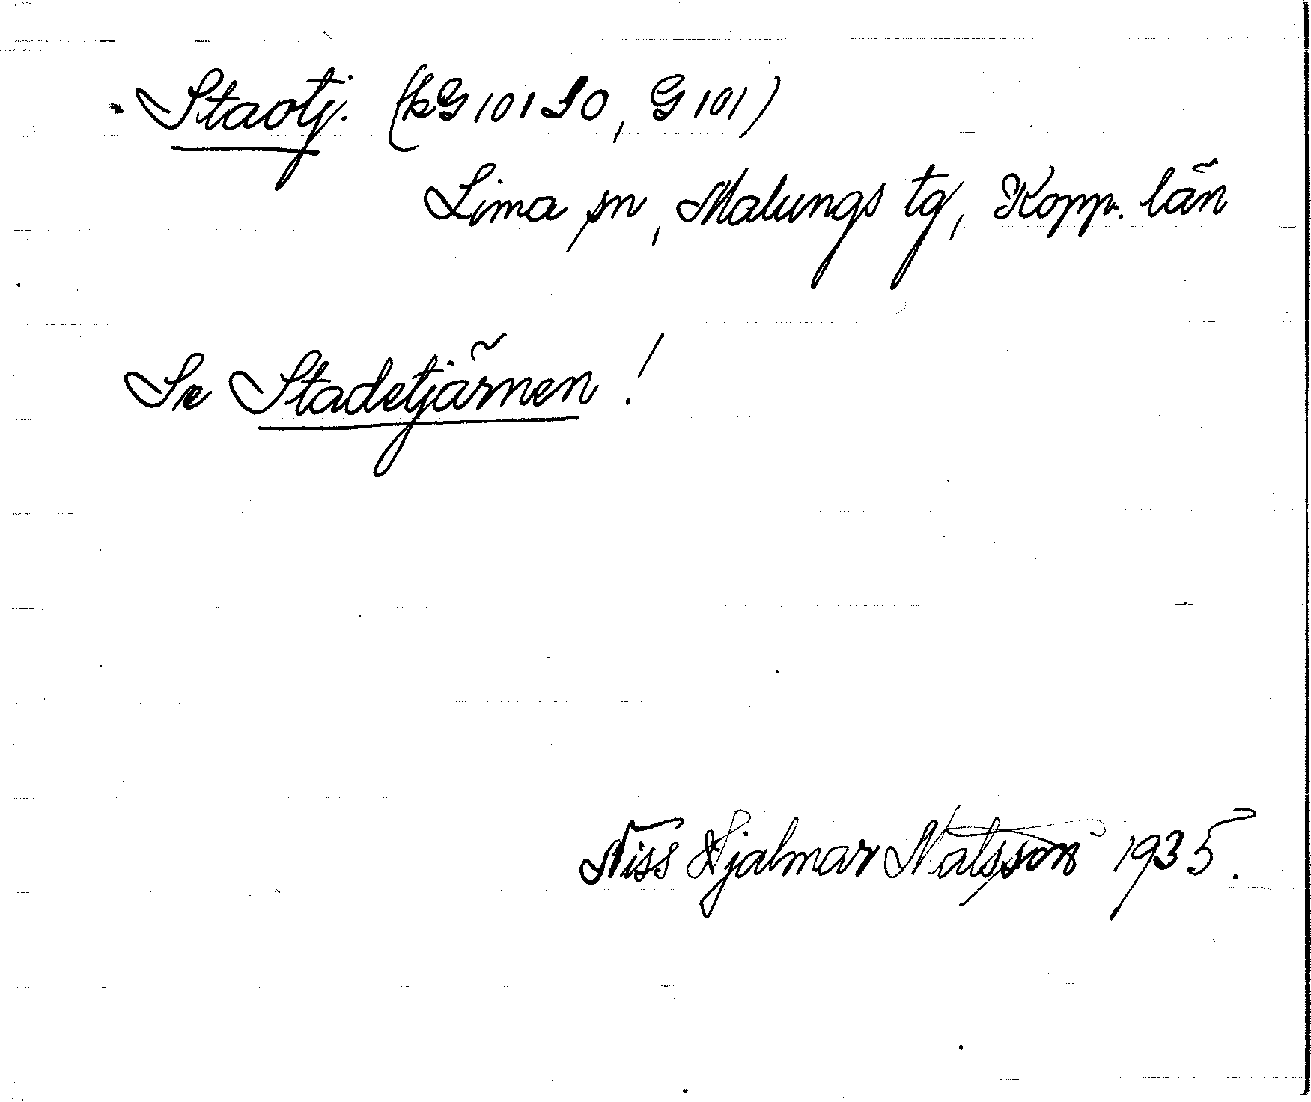 Staotj. (kG 101 SO, G 101)
Lima sn, Malungs tg, Kopp. län
Se Stadetjärnen!
Niss Hjalmar Matsson 1935.